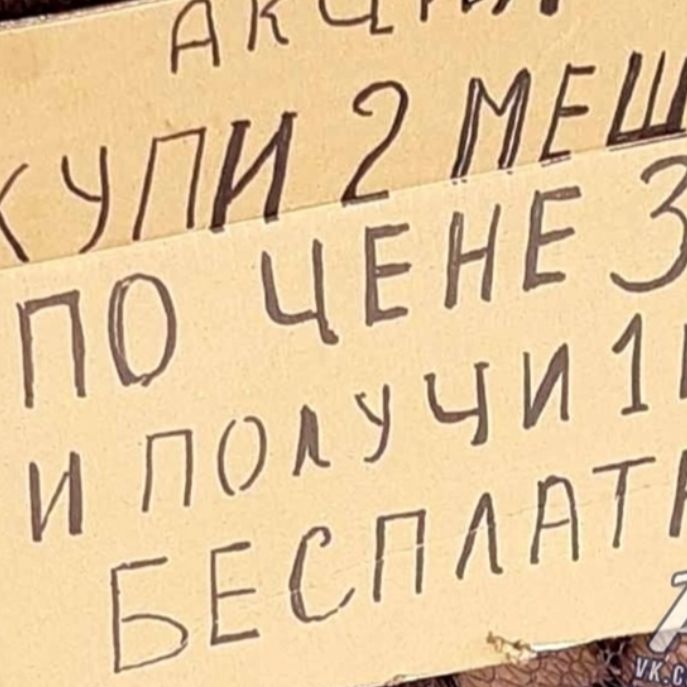 АКЦИЯ
КУПИ 2 МЕШ
ПО ЦЕНЕ 3
И ПОЛУЧИ 1
БЕСПЛАТН
VK.C